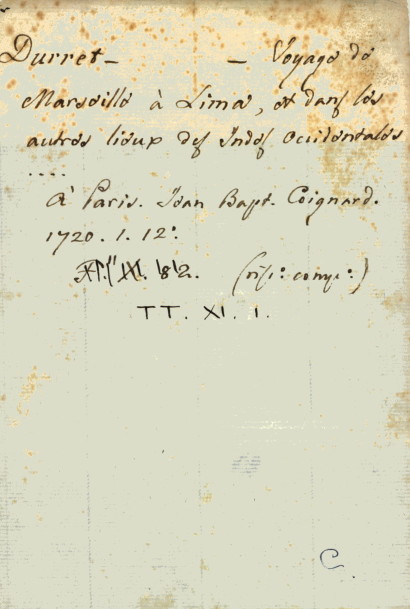 Durret — — Voyage de
Marseille à Lima, et dans les
autres lieux des Indes Occidentales
....
A Paris. Jean Bapt. Coignard.
1720. 1. 12º.
IX. 812.
TT. XI. 1.
C